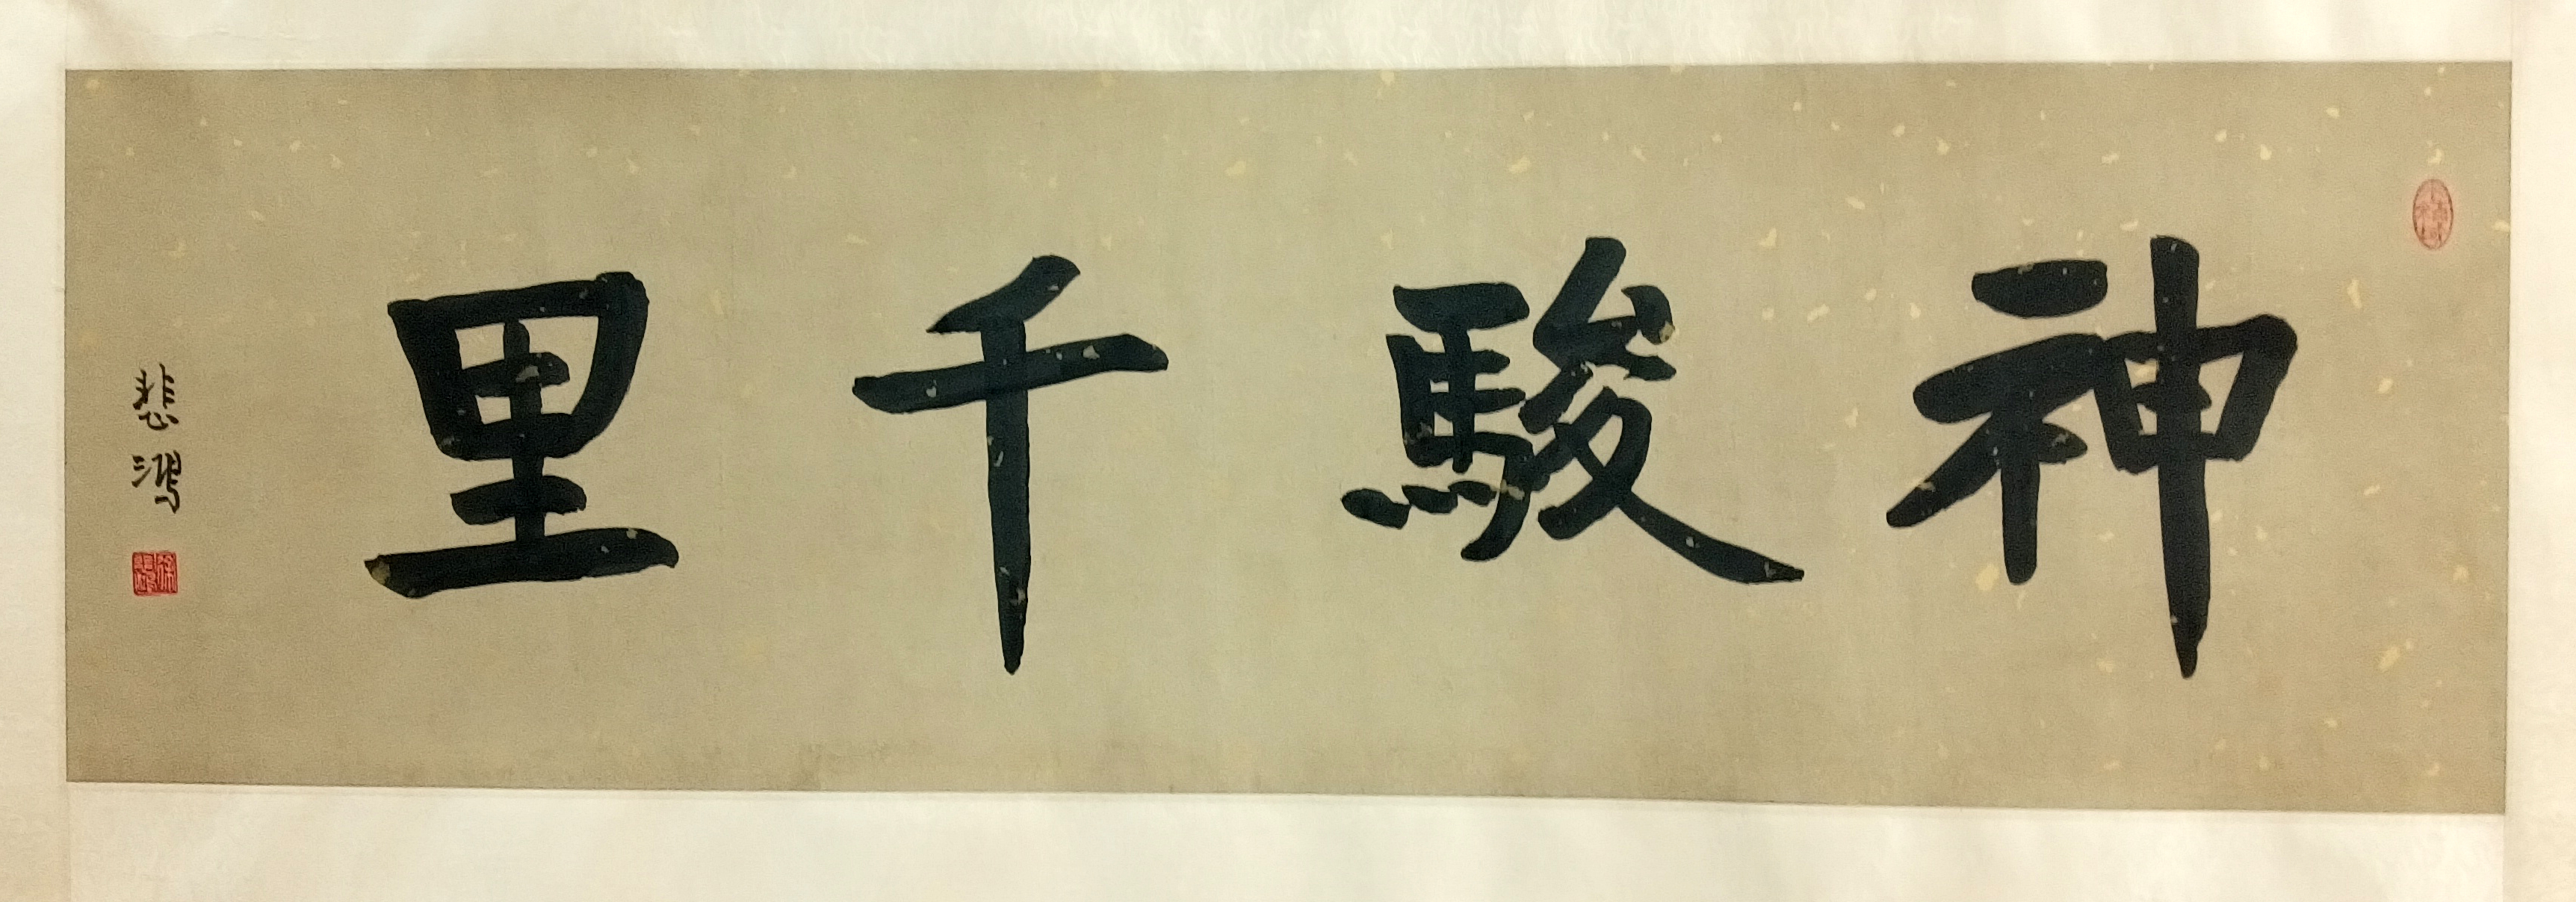 神駿千里
悲鴻